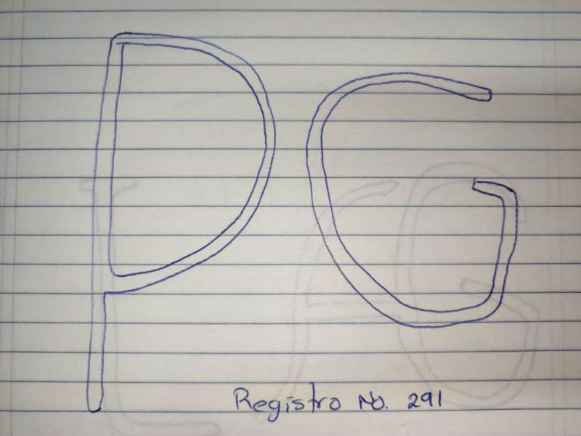 PG
Registro No. 291